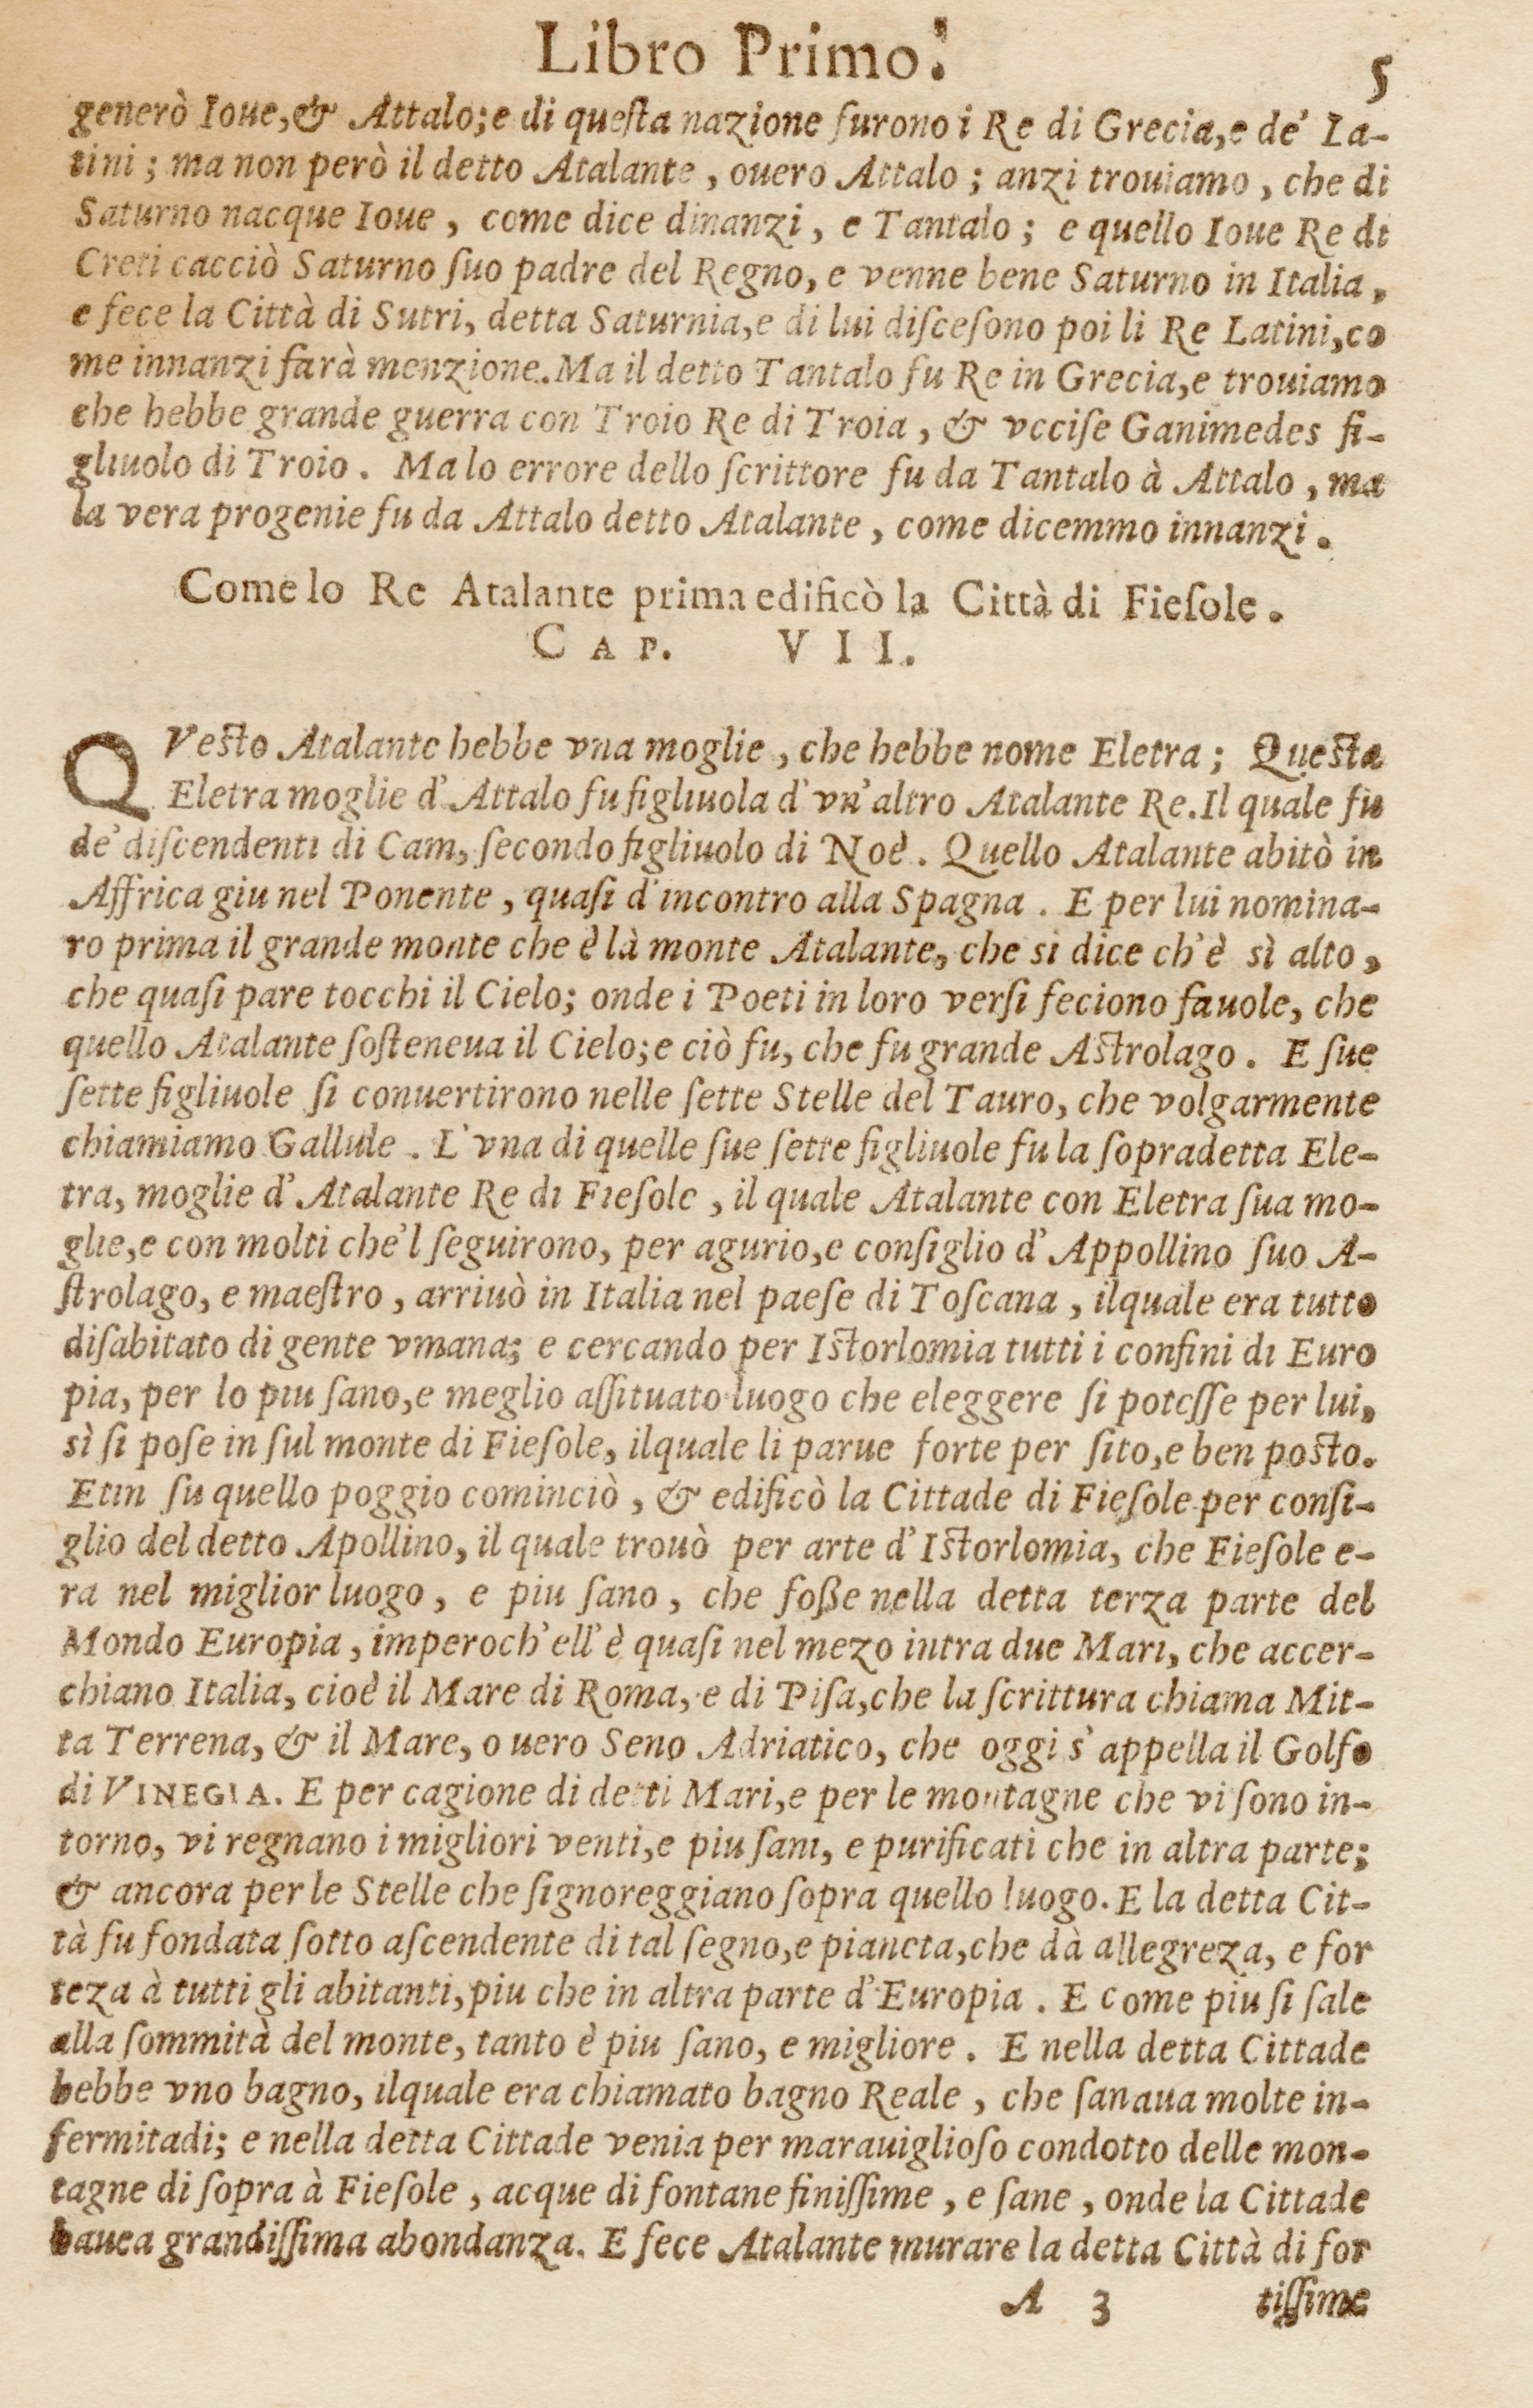 Libro Primo. 5
generò Ioue, & Attalo; e di queſta nazione furono i Re di Grecia, e de' La-
tini; ma non però il detto Atalante, ouero Attalo; anzi trouiamo, che di
Saturno nacque Ioue, come dice dinanzi, e Tantalo; e quello Ioue Re di
Creti cacciò Saturno ſuo padre del Regno, e venne bene Saturno in Italia,
e fece la Città di Sutri, detta Saturnia, e di lui diſceſono poi li Re Latini, co
me innanzi farà menzione. Ma il detto Tantalo fu Re in Grecia, e trouiamo
che hebbe grande guerra con Troio Re di Troia, & vcciſe Ganimedes fi-
gliuolo di Troio. Ma lo errore dello ſcrittore fu da Tantalo à Attalo, ma
la vera progenie fu da Attalo detto Atalante, come dicemmo innanzi.
Come lo Re Atalante prima edificò la Città di Fieſole.
CAP. VII.
QVeſto Atalante hebbe vna moglie, che hebbe nome Eletra; Queſta
Eletra moglie d'Attalo fu figliuola d'vn'altro Atalante Re. Il quale fu
de' diſcendenti di Cam, ſecondo figliuolo di Noè. Quello Atalante abitò in
Affrica giu nel Ponente, quaſi d'incontro alla Spagna. E per lui nomina-
ro prima il grande monte che è là monte Atalante, che si dice ch'è sì alto,
che quaſi pare tocchi il Cielo; onde i Poeti in loro verſi feciono fauole, che
quello Atalante ſoſteneua il Cielo; e ciò fu, che fu grande Aſtrolago. E ſue
ſette figliuole ſi conuertirono nelle ſette Stelle del Tauro, che volgarmente
chiamiamo Gallule. L'vna di quelle ſue ſette figliuole fu la ſopradetta Ele-
tra, moglie d'Atalante Re di Fieſole, il quale Atalante con Eletra ſua mo-
glie, e con molti che'l ſeguirono, per agurio, e conſiglio d'Appollino ſuo A-
ſtrolago, e maeſtro, arriuò in Italia nel paeſe di Toſcana, ilquale era tutto
diſabitato di gente vmana; e cercando per Iſtorlomia tutti i confini di Euro
pia, per lo piu ſano, e meglio aſſituato luogo che eleggere ſi poteſſe per lui,
sì ſi poſe in ſul monte di Fieſole, ilquale li parue forte per ſito, e ben poſto.
Et in ſu quello poggio cominciò, & edificò la Cittade di Fieſole per conſi-
glio del detto Apollino, il quale trouò per arte d'Iſtorlomia, che Fieſole e-
ra nel miglior luogo, e piu ſano, che foſſe nella detta terza parte del
Mondo Europia, imperoch'ell'è quaſi nel mezo intra due Mari, che accer-
chiano Italia, cioè il Mare di Roma, e di Piſa, che la ſcrittura chiama Mit-
ta Terrena, & il Mare, o uero Seno Adriatico, che oggi s'appella il Golfo
di VINEGIA. E per cagione di detti Mari, e per le montagne che vi ſono in-
torno, vi regnano i migliori venti, e piu ſani, e purificati che in altra parte;
& ancora per le Stelle che ſignoreggiano ſopra quello luogo. E la detta Cit-
tà fu fondata ſotto aſcendente di tal ſegno, e pianeta, che dà allegreza, e for
teza à tutti gli abitanti, piu che in altra parte d'Europia. E come piu ſi ſale
alla ſommità del monte, tanto è piu ſano, e migliore. E nella detta Cittade
hebbe vno bagno, ilquale era chiamato bagno Reale, che ſanaua molte in-
fermitadi; e nella detta Cittade venia per marauiglioſo condotto delle mon-
tagne di ſopra à Fieſole, acque di fontane finiſſime, e ſane, onde la Cittade
hauea grandiſſima abondanza. E fece Atalante murare la detta Città di for
A 3 tiſſime